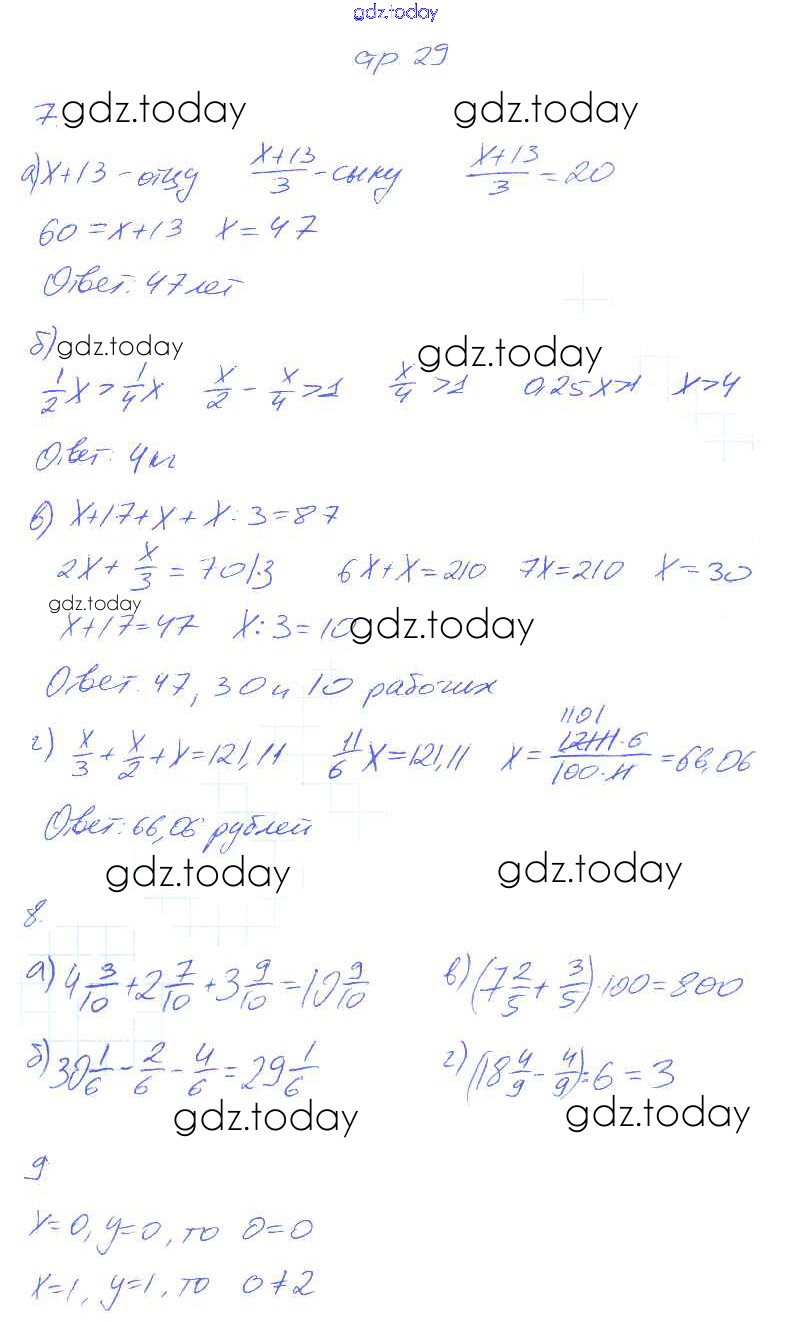 gdz.today
стр 29
7 gdz.today gdz.today
а) x+13 - отцу (x+13)/3 - сыну (x+13)/3 = 20
60 = x+13 x = 47
Ответ: 47 лет
б) gdz.today gdz.today
1/2 x > 1/4 x x/2 - x/4 > 1 x/4 > 1 0,25x>1 x>4
Ответ: 4 кг
в) x+17+x+x:3=87
2x + x/3 = 70|·3 6x+x=210 7x=210 x=30
gdz.today
x+17=47 x:3=10 gdz.today
Ответ: 47, 30 и 10 рабочих
г) x/3 + x/2 + x = 121,11 11/6 x = 121,11 x = (12111·6)/(100·11) = 66,06
1101
Ответ: 66,06 рублей
gdz.today gdz.today
8.
а) 4 3/10 + 2 7/10 + 3 9/10 = 10 9/10 в) (7 2/5 + 3/5)·100=800
б) 30 1/6 - 2/6 - 4/6 = 29 1/6 г) (18 4/9 - 4/9):6=3
gdz.today gdz.today
9
x=0, y=0, то 0=0
x=1, y=1, то 0≠2